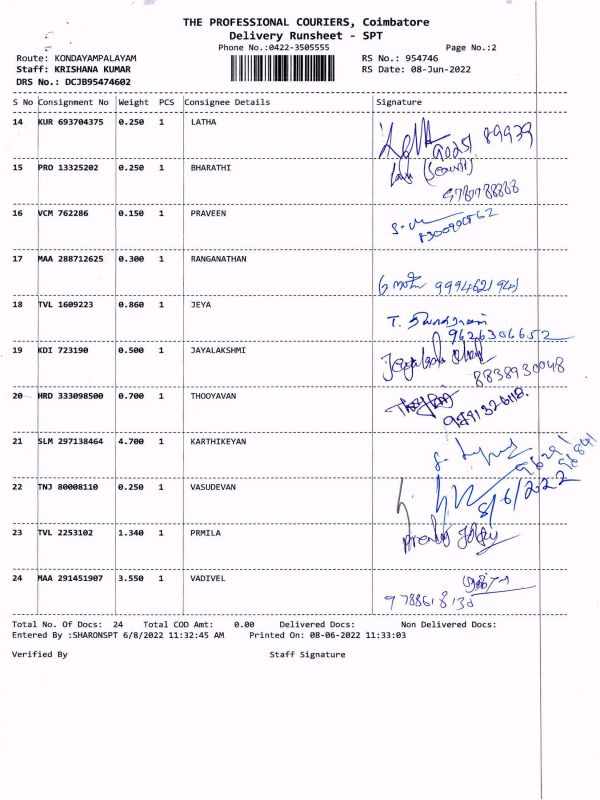 THE PROFESSIONAL COURIERS, Coimbatore
Delivery Runsheet - SPT
Phone No.:0422-3505555 Page No.:2
Route: KONDAYAMPALAYAM RS No.: 954746
Staff: KRISHANA KUMAR RS Date: 08-Jun-2022
DRS No.: DCJB95474602
S No Consignment No Weight PCS Consignee Details Signature
14 KUR 693704375 0.250 1 LATHA
90251 89939
15 PRO 13325202 0.250 1 BHARATHI
16 VCM 762286 0.150 1 PRAVEEN
17 MAA 288712625 0.300 1 RANGANATHAN
9994621941
18 TVL 1609223 0.860 1 JEYA
9626306652
19 KDI 723190 0.500 1 JAYALAKSHMI
8838930048
20 HRD 333098500 0.700 1 THOOYAVAN
21 SLM 297138464 4.700 1 KARTHIKEYAN
22 TNJ 80008110 0.250 1 VASUDEVAN
8/6/2022
23 TVL 2253102 1.340 1 PRMILA
24 MAA 291451907 3.550 1 VADIVEL
Total No. Of Docs: 24 Total COD Amt: 0.00 Delivered Docs: Non Delivered Docs:
Entered By :SHARONSPT 6/8/2022 11:32:45 AM Printed On: 08-06-2022 11:33:03
Verified By Staff Signature